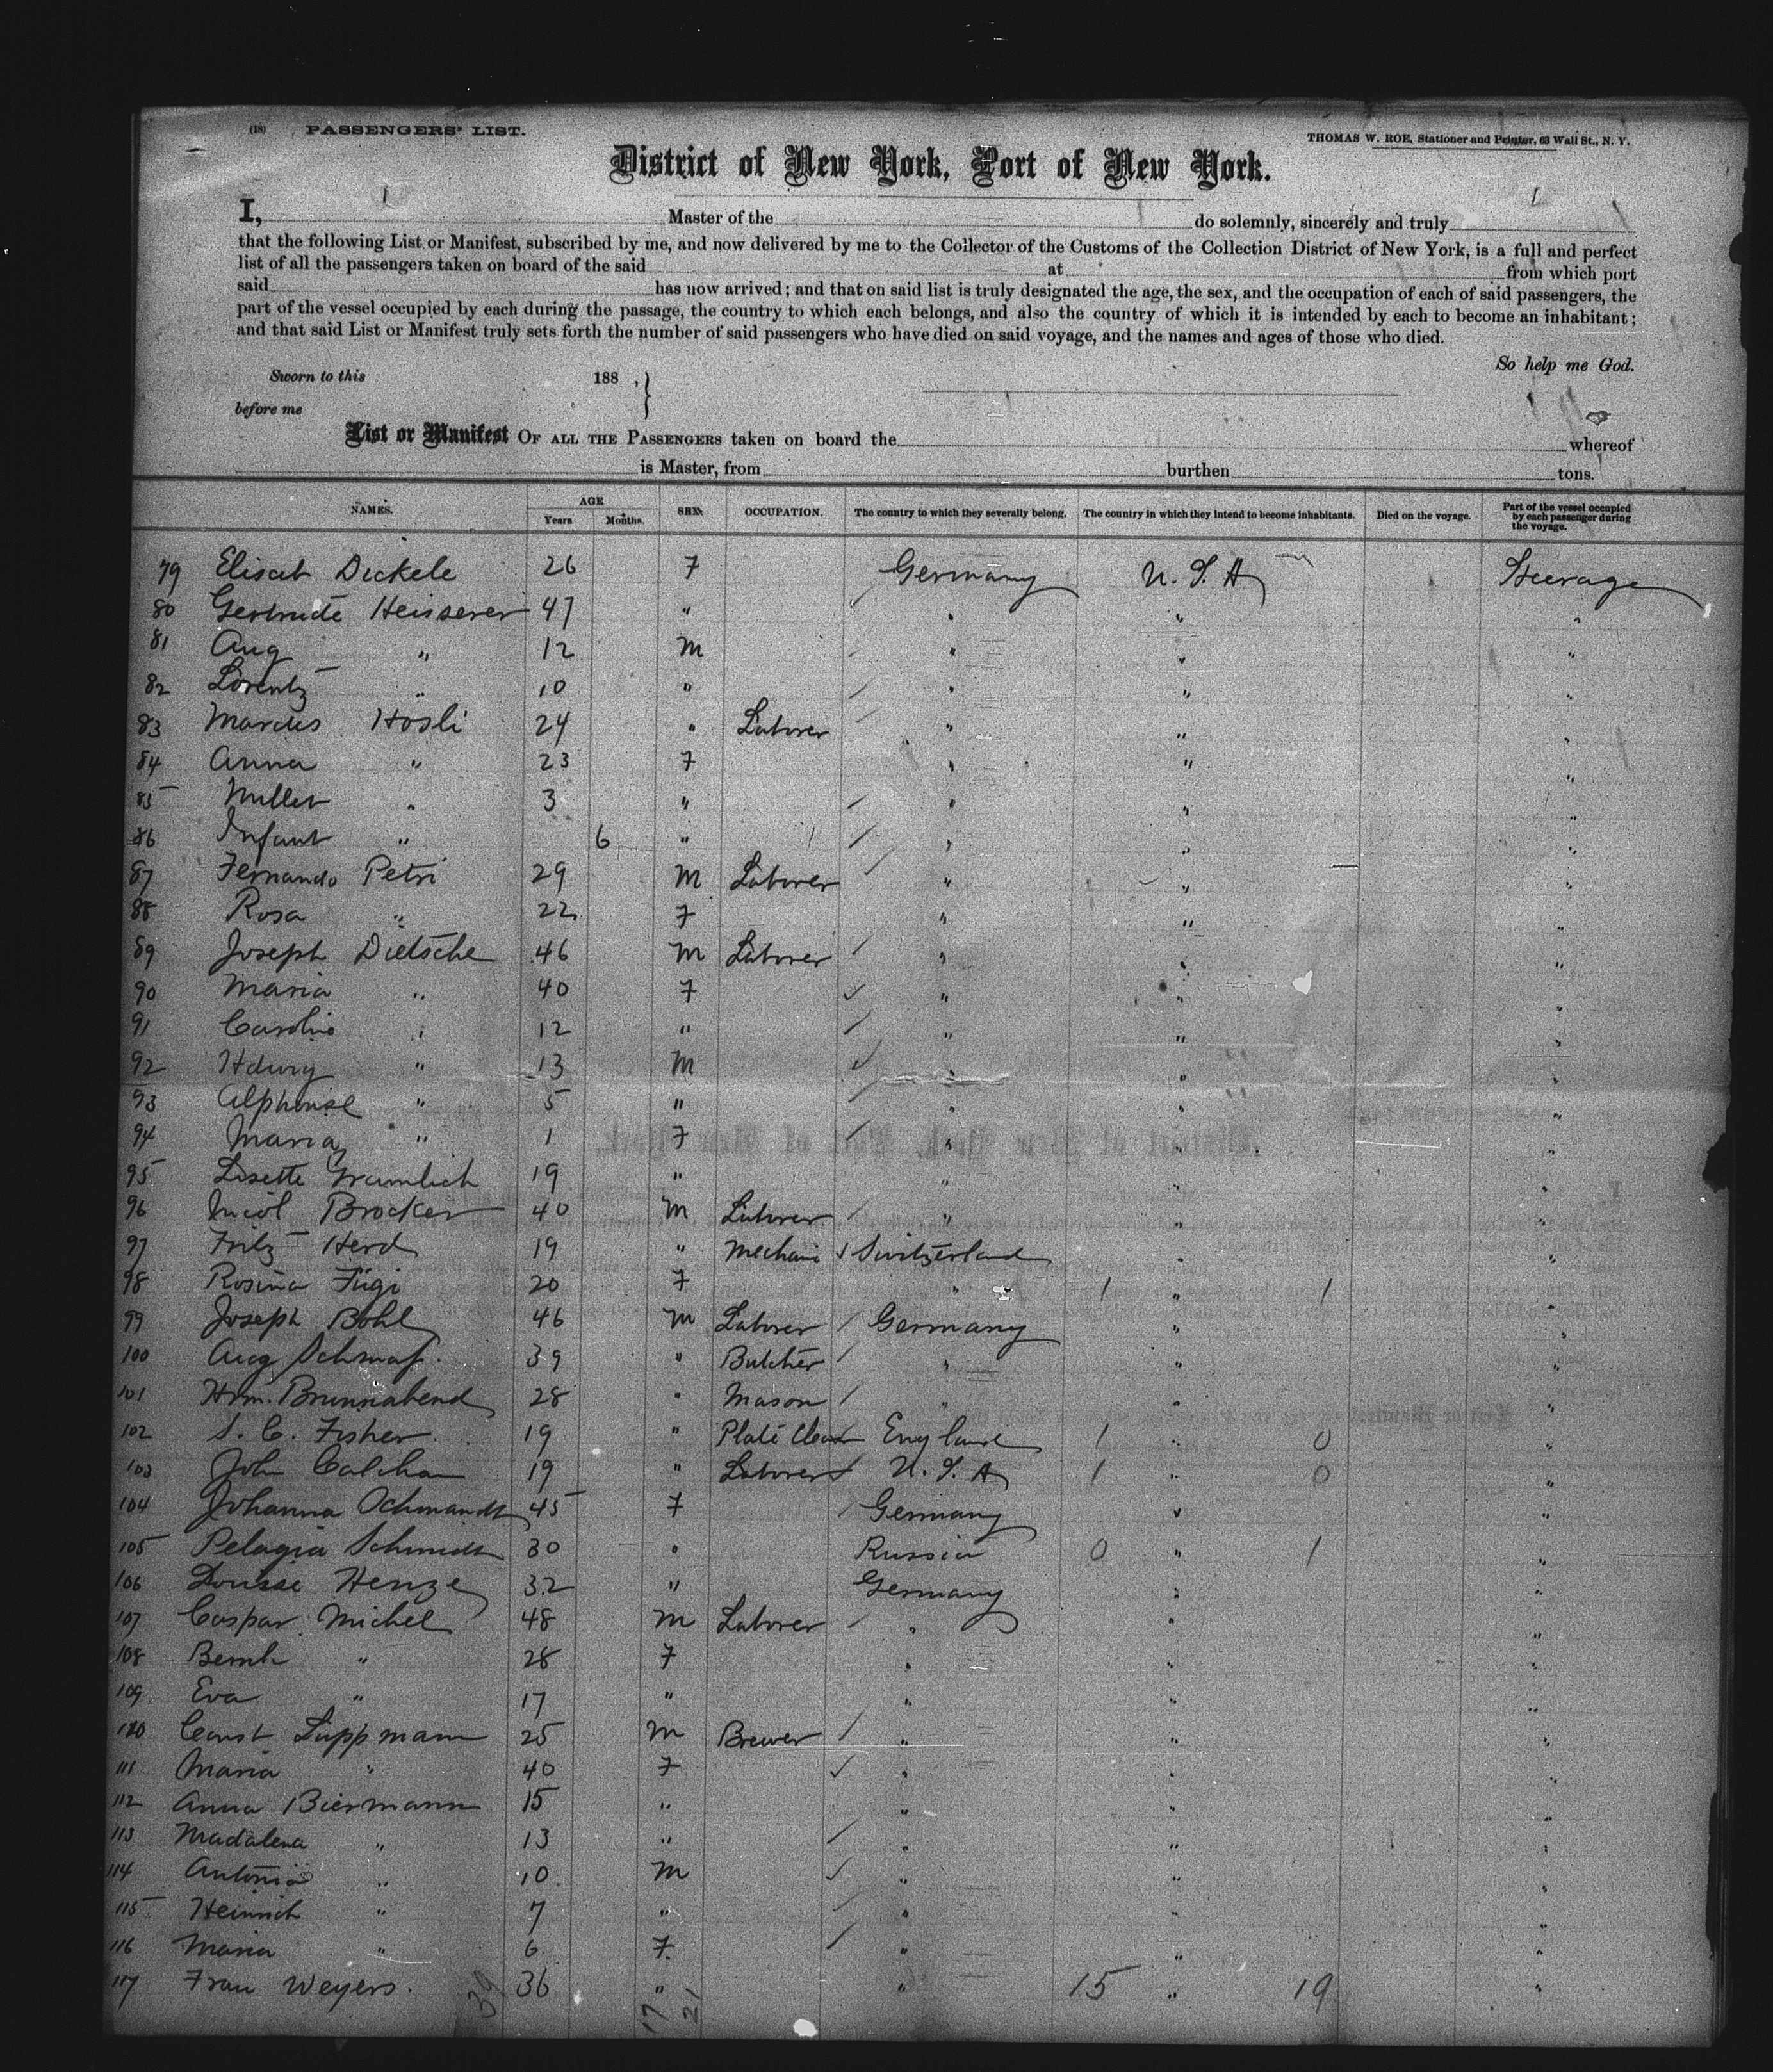 (18) PASSENGERS' LIST. THOMAS W. ROE, Stationer and Printer, 63 Wall St., N. Y.
District of New York, Port of New York.
I, Master of the do solemnly, sincerely and truly
that the following List or Manifest, subscribed by me, and now delivered by me to the Collector of the Customs of the Collection District of New York, is a full and perfect
list of all the passengers taken on board of the said at from which port
said has now arrived; and that on said list is truly designated the age, the sex, and the occupation of each of said passengers, the
part of the vessel occupied by each during the passage, the country to which each belongs, and also the country of which it is intended by each to become an inhabitant;
and that said List or Manifest truly sets forth the number of said passengers who have died on said voyage, and the names and ages of those who died.
So help me God.
Sworn to this 188 , }
before me
List or Manifest OF ALL THE PASSENGERS taken on board the whereof
is Master, from burthen tons.
NAMES. AGE Years Months. SEX. OCCUPATION. The country to which they severally belong. The country in which they intend to become inhabitants. Died on the voyage. Part of the vessel occupied by each passenger during the voyage.
79 Elisab Dickele 26 F Germany U.S.A Steerage
80 Gertrude Heisserer 47 " " " "
81 Aug " 12 M " " "
82 Lorentz " 10 " " " "
83 Marcus Hösli 24 " Laborer " " "
84 Anna " 23 F " " "
85 " 3 " " " "
86 Infant " 6 " " " "
87 Fernando Petri 29 M Laborer " " "
88 Rosa " 22 F " " "
89 Joseph Dietsche 46 M Laborer " " "
90 Maria " 40 F " " "
91 Caroline " 12 " " " "
92 " 13 M " " "
93 Alphonse " 5 " " " "
94 Maria " 1 F " " "
95 Lisette Gramlich 19 " " " "
96 Nicol Brocker 40 M Laborer " " "
97 Fritz Herd 19 " Mechani Switzerland " "
98 Rosina Fügi 20 F " 1 " 1 "
99 Joseph Bohl 46 M Laborer Germany " "
100 Aug 39 " Butcher " " "
101 Hrm. Brunnabend 28 " Mason " " "
102 S. C. Fisher 19 " Plate England 1 " 0 "
103 John 19 " Laborer U.S.A 1 " 0 "
104 Johanna Ochmandt 45 F Germany " "
105 Pelagia Schmidt 30 " Russia 0 " 1 "
106 Louise Henze 32 " Germany " "
107 Caspar Michel 48 M Laborer " " "
108 Bernh " 28 F " " "
109 Eva " 17 " " " "
110 Const Lippmann 25 M Brewer " " "
111 Maria " 40 F " " "
112 Anna Biermann 15 " " " "
113 Madalena " 13 " " " "
114 Antonio " 10 M " " "
115 Heinrich " 7 " " " "
116 Maria " 6 F. " " "
117 Frau Weyers. 36 " " 15 " 19 "
39 17 21